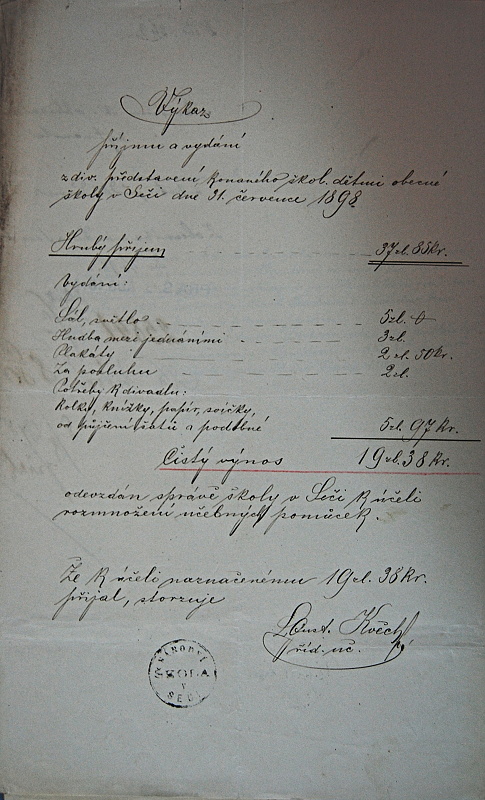 Výkaz
příjmu a vydání
z div. představení konaného škol. dětmi obecné
školy v Seči dne 31. července 1898
Hrubý příjem 37 zl. 85 kr.
Vydání:
Sál, světlo 5 zl.
Hudba mezi jednáními 3 zl.
Plakáty 2 zl. 50 kr.
Za posluhu 2 zl.
Potřeby k divadlu:
Kolky, knížky, papír, svíčky,
od půjčení šatů a podobné 5 zl. 97 kr.
Čistý výnos 19 zl. 38 kr.
odevzdán správě školy v Seči k účeli
rozmnožení učebných pomůcek.
Že k účeli naznačenému 19 zl. 38 kr.
přijal, stvrzuje
Kvěch
říd. uč.
NÁRODNÍ
ŠKOLA
V
SEČI